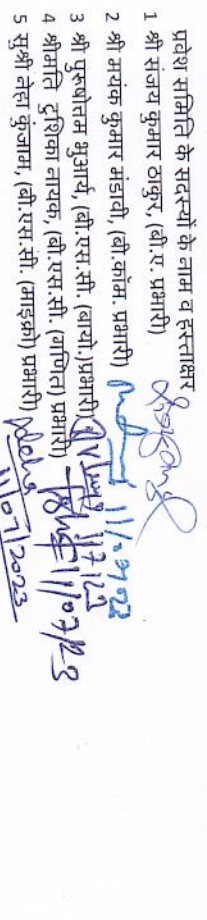 प्रवेश समिति के सदस्यों के नाम व हस्ताक्षर
1 श्री संजय कुमार ठाकुर, (बी.ए. प्रभारी)
2 श्री मयंक कुमार मंडावी, (बी.कॉम. प्रभारी)
3 श्री पुरूषोतम भुआर्य, (बी.एस.सी. (बायो.)प्रभारी)
4 श्रीमति टूशिका नायक, (बी.एस.सी. (गणित) प्रभारी) 11/07/23
5 सुश्री नेहा कुंजाम, (बी.एस.सी. (माइक्रो) प्रभारी) Neha 11/07/2023